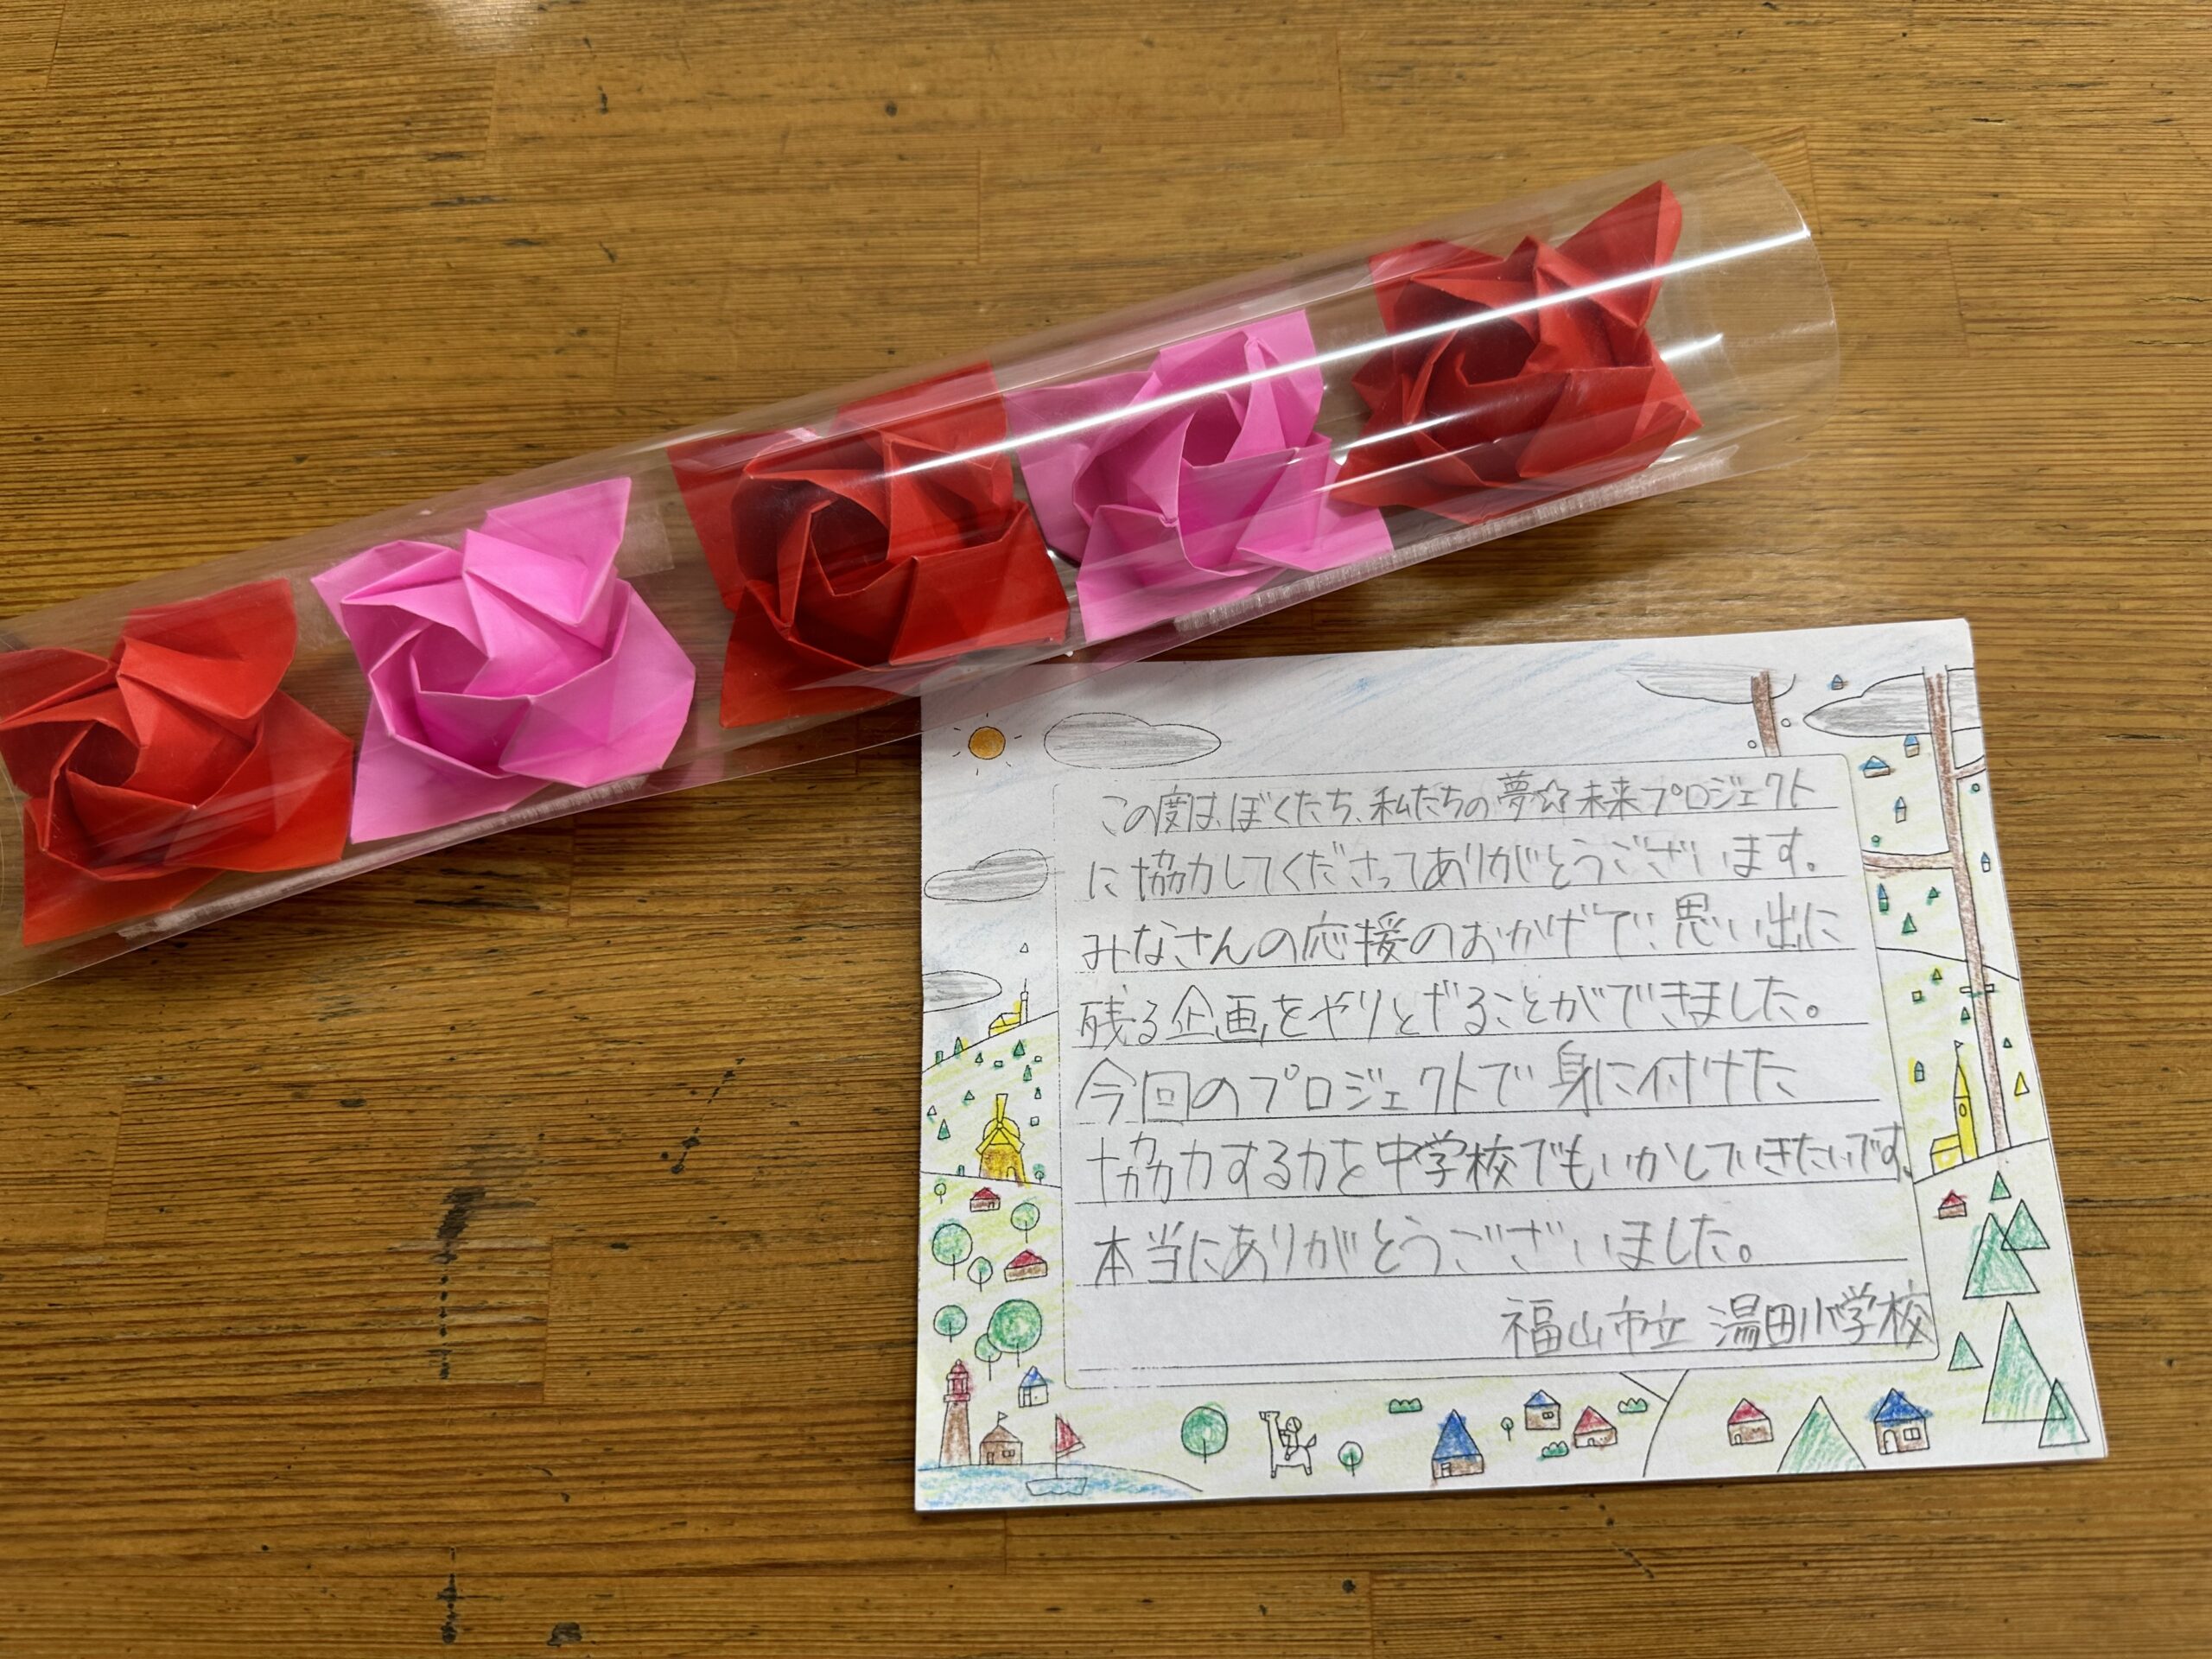 この度は、ぼくたち、私たちの夢☆未来プロジェクト
に協力してくださってありがとうございます。
みなさんの応援のおかげで、思い出に
残る企画をやりとげることができました。
今回のプロジェクトで身に付けた
協力する力を中学校でもいかしていきたいです。
本当にありがとうございました。
福山市立 湯田小学校